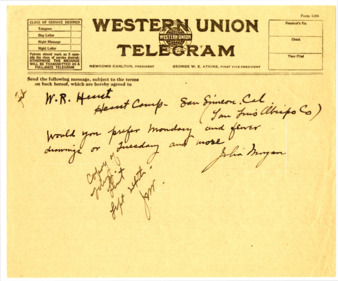 Form 1204
CLASS OF SERVICE DESIRED
Telegram
Day Letter
Night Message
Night Letter
Patrons should mark an X opposite the class of service desired; OTHERWISE THE MESSAGE WILL BE TRANSMITTED AS A FULL-RATE TELEGRAM
WESTERN UNION
WESTERN UNION
TELEGRAM
NEWCOMB CARLTON, PRESIDENT
GEORGE W. E. ATKINS, FIRST VICE-PRESIDENT
Receiver's No.
Check
Time Filed
Send the following message, subject to the terms
on back hereof, which are hereby agreed to
W. R. Hearst
Hearst Camp - San Simeon, Cal.
(San Luis Obispo Co)
Would you prefer Monday and fewer
drawings or Tuesday and more
Julia Morgan
Copy of
sent